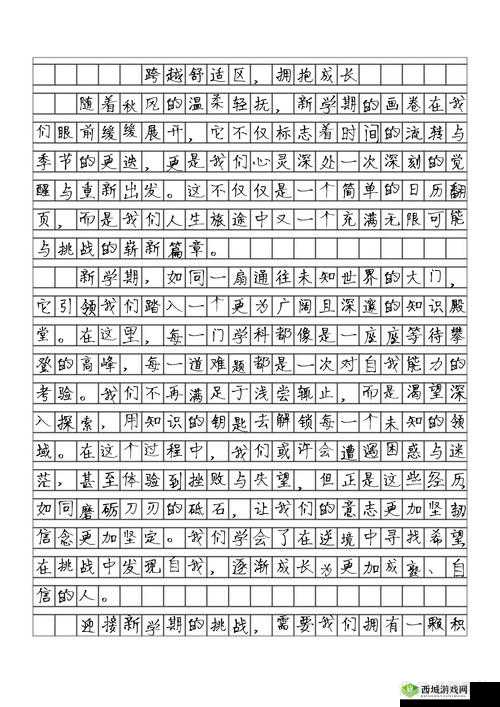 跨越舒适区，拥抱成长
随着秋风的温柔轻抚，新学期的画卷在我
们眼前缓缓展开，它不仅标志着时间的流转与
季节的更迭，更是我们心灵深处一次深刻的觉
醒与重新出发。这不仅仅是一个简单的日历翻
页，而是我们人生旅途中又一个充满无限可能
与挑战的崭新篇章。
新学期，如同一扇通往未知世界的大门，
它引领我们踏入一个更为广阔且深邃的知识殿
堂。在这里，每一门学科都像是一座座等待攀
登的高峰，每一道难题都是一次对自我能力的
考验。我们不再满足于浅尝辄止，而是渴望深
入探索，用知识的钥匙去解锁每一个未知的领
域。在这个过程中，我们或许会遭遇困惑与迷
茫，甚至体验到挫败与失望，但正是这些经历
如同磨砺刀刃的砥石，让我们的意志更加坚韧
信念更加坚定。我们学会了在逆境中寻找希望
在挑战中发现自我，逐渐成长为更加成熟、自
信的人。
迎接新学期的挑战，需要我们拥有一颗积
西城游戏网